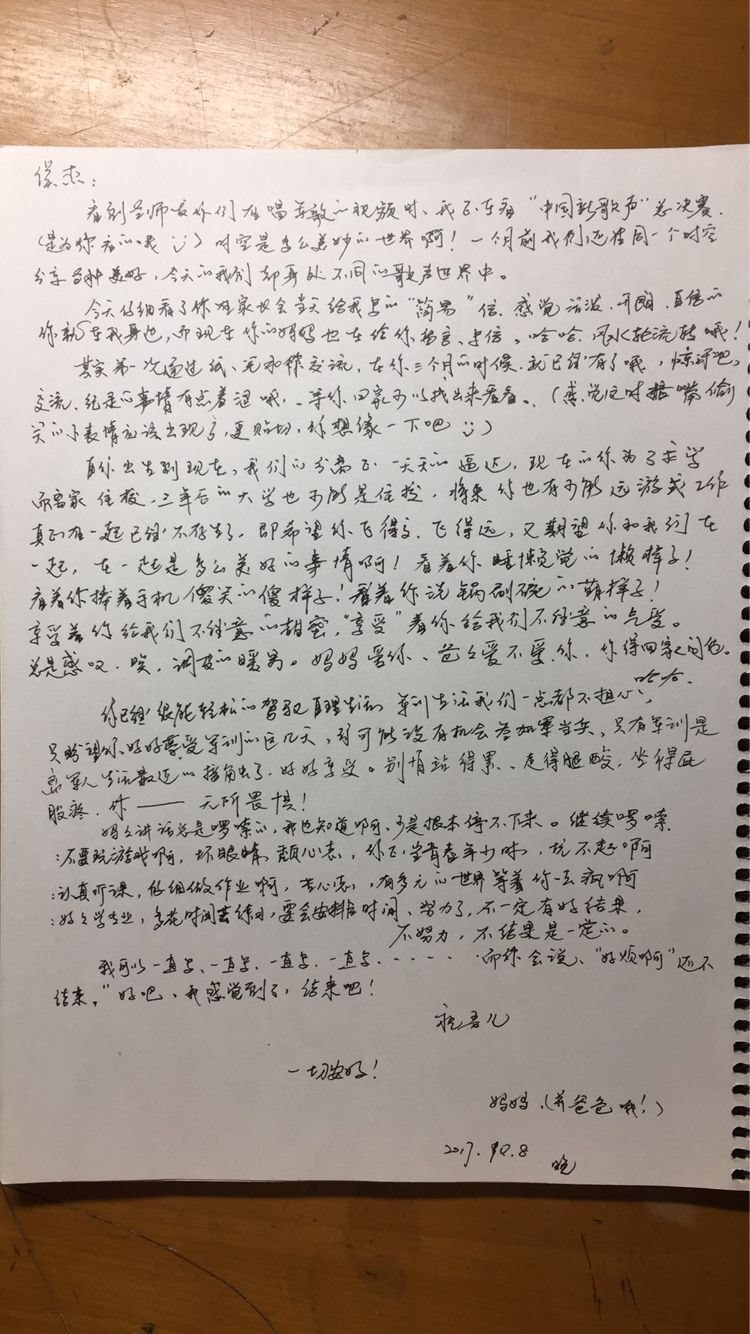 保杰：
看到老师发你们在唱军歌的视频时、我正在看“中国新歌声”总决赛.
(是为你看的哦) 时空是多么美妙的世界啊！一个月前我们还在同一个时空
分享各种美好，今天的我们却身处不同的歌声世界中。
今天仔细看了你在家长会当天给我写的“简易”信. 感觉活波.开朗.自信的
你就在我身边，而现在你的妈妈也在给你留言、写信。哈哈.风水轮流转哦！
其实第一次通过纸、笔和你交流，在你三个月的时候.就已经有了哦，惊讶吧，
交流.纪录的事情有点着迷哦，等你回家可以找出来看看。(感觉这时捂嘴偷
笑的小表情应该出现了,更贴切,你想像一下吧)
自你出生到现在，我们的分离正一天天的逼近，现在的你为了求学
而离家住校.三年后的大学也可能是住校，将来你也有可能远游或工作
真正在一起已经不存在了. 即希望你飞得高、飞得远，又期望你和我们在
一起，在一起是多么美好的事情啊！看着你睡懒觉的懒样子！
看着你捧着手机傻笑的傻样子！看着你洗锅刷碗的萌样子！
享受着你给我们不经意的甜蜜，“享受”着你给我们不经意的气受。
总是感叹.唉，调皮的暖男。妈妈爱你、爸爸爱不爱你、你得回家问他。
哈哈.
你已经能轻松的驾驭自理生活 军训生活我们一点都不担心,
只盼望你好好享受军训的这几天，可能没有机会参加军当兵、只有军训是
和军人生活最近的接触了.好好享受。别怕站得累、走得腿酸，坐得屁
股疼.你——无所畏惧！
妈妈讲话总是啰嗦的，我也知道啊，可是根本停不下来。继续啰嗦
:不要玩游戏啊，坏眼睛.颓心志，你正当青春年少时，坑不起啊
:认真听课，仔细做作业啊，苦心志，有多元的世界等着你去疯啊
:好好学专业，多花时间去练习，要会安排时间、努力了，不一定有好结果，
不努力，不结果是一定的。
我可以一直写、一直写、一直写、一直写.....而你会说、“好烦啊”还不
结束。”好吧、我感觉到了，结束吧！
祝君儿
一切安好！
妈妈、(并爸爸哦！)
2017. 10.8 晚